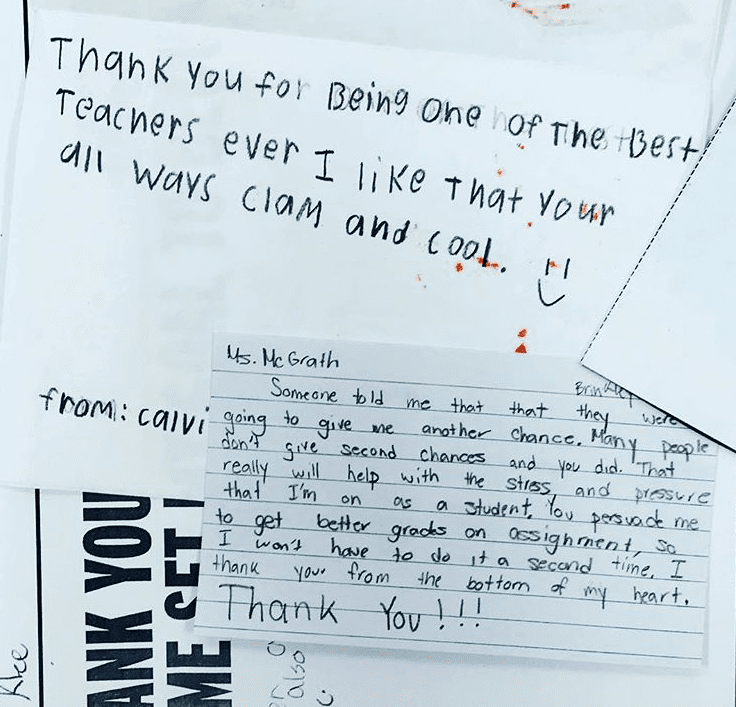 Thank You for Being one of The Best
Teachers ever I like That your
all ways clam and cool.
from: calvi
Ms. McGrath
Brinkley
Someone told me that that they were
going to give me another chance. Many people
don't give second chances and you did. That
really will help with the stress, and pressure
that I'm on as a student. You persuade me
to get better grades on assignment, so
I won't have to do it a second time. I
thank your from the bottom of my heart.
Thank You!!!
ANK YOU
ME SET
also